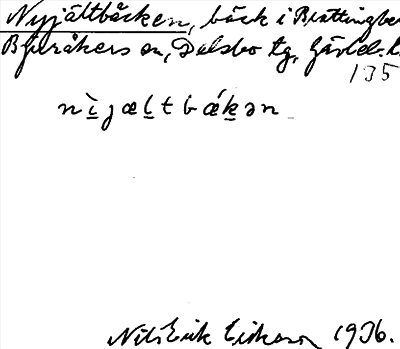 Nyjältbäcken, bäck i Brattingbe
Bjuråkers sn, Delsbo tg, Gävleb. l.
135
nìjæltbǽkən
Nils Erik Eriksson 1936.